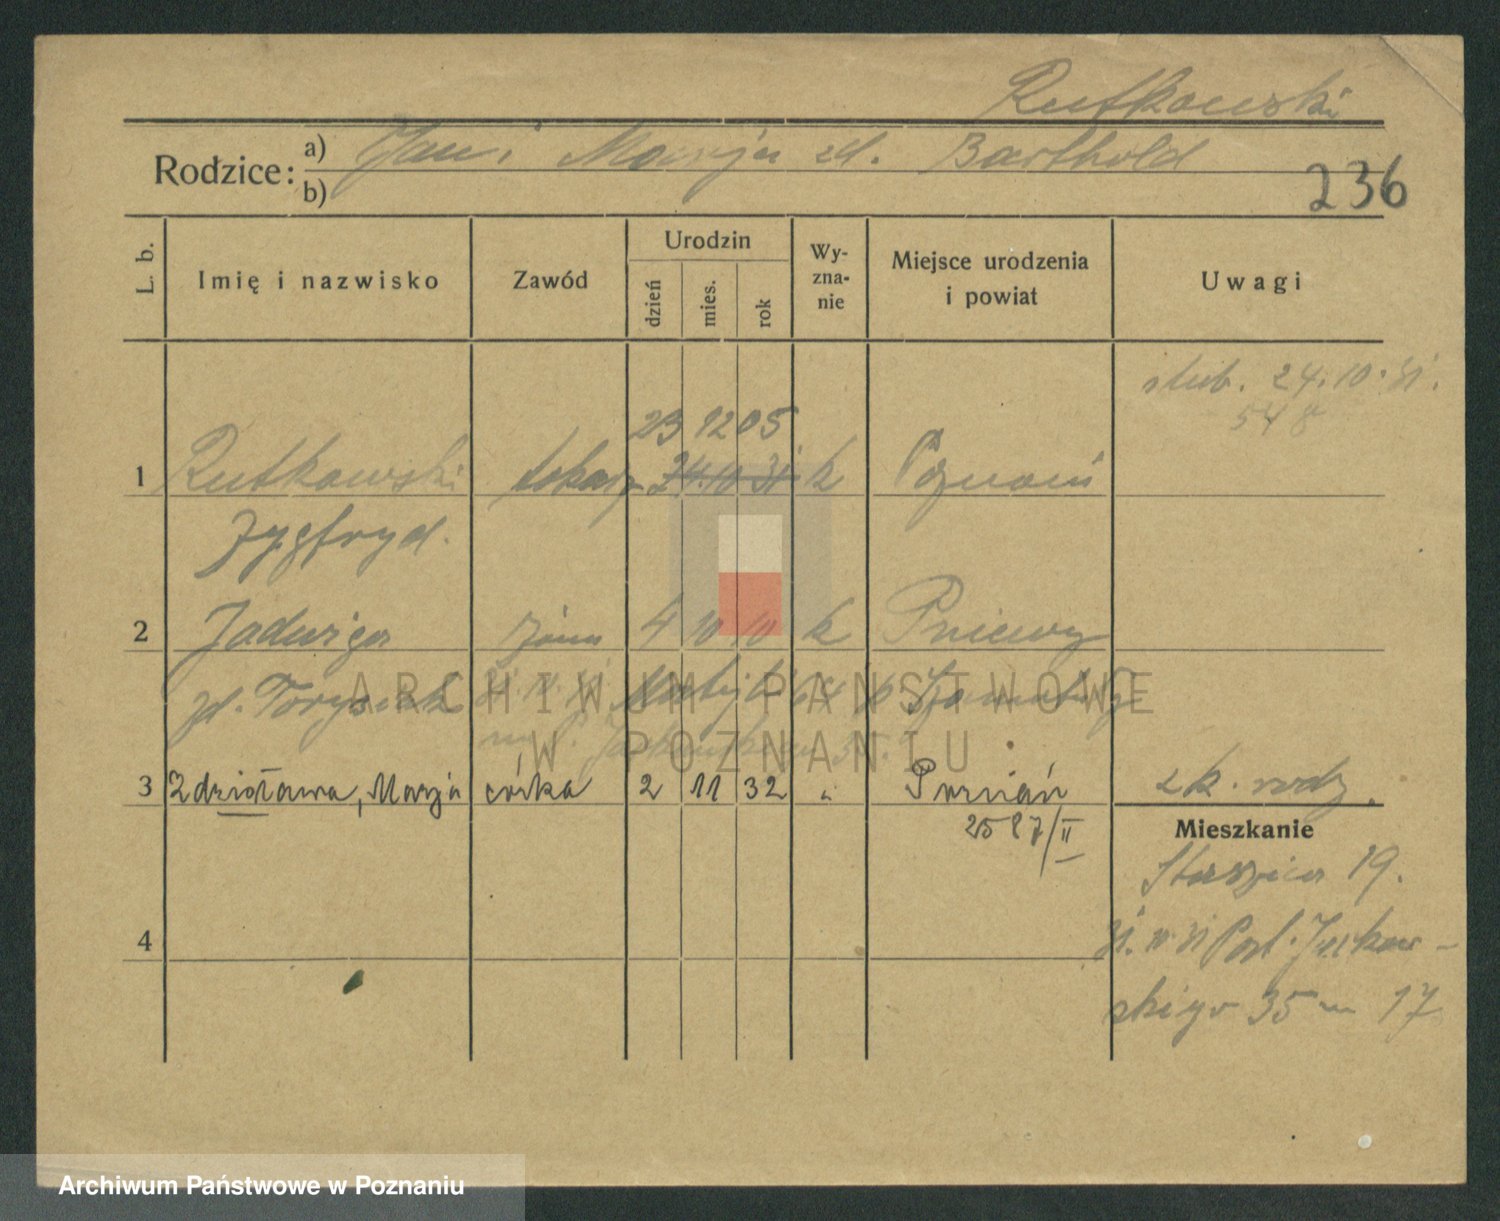 Rutkowski
Rodzice: a) Jan i Marja zd. Barthold
b)
236
L. b. Imię i nazwisko Zawód Urodzin dzień mies. rok Wyznanie Miejsce urodzenia i powiat Uwagi
ślub. 24.10.31.
548
23 12 05
1 Rutkowski tokarz 24.10 31 k Poznań
Zygfryd.
2 Jadwiga żona 4 10 10 k Pniewy
zd.
3 Zdzisława, Marja córka 2 11 32 " Poznań zk. rodz.
2587/II
Mieszkanie
Staszica 19.
31. 10 31 Posł. Jackow-
skiego 35 m 17
4
ARCHIWUM PAŃSTWOWE
W POZNANIU
Archiwum Państwowe w Poznaniu